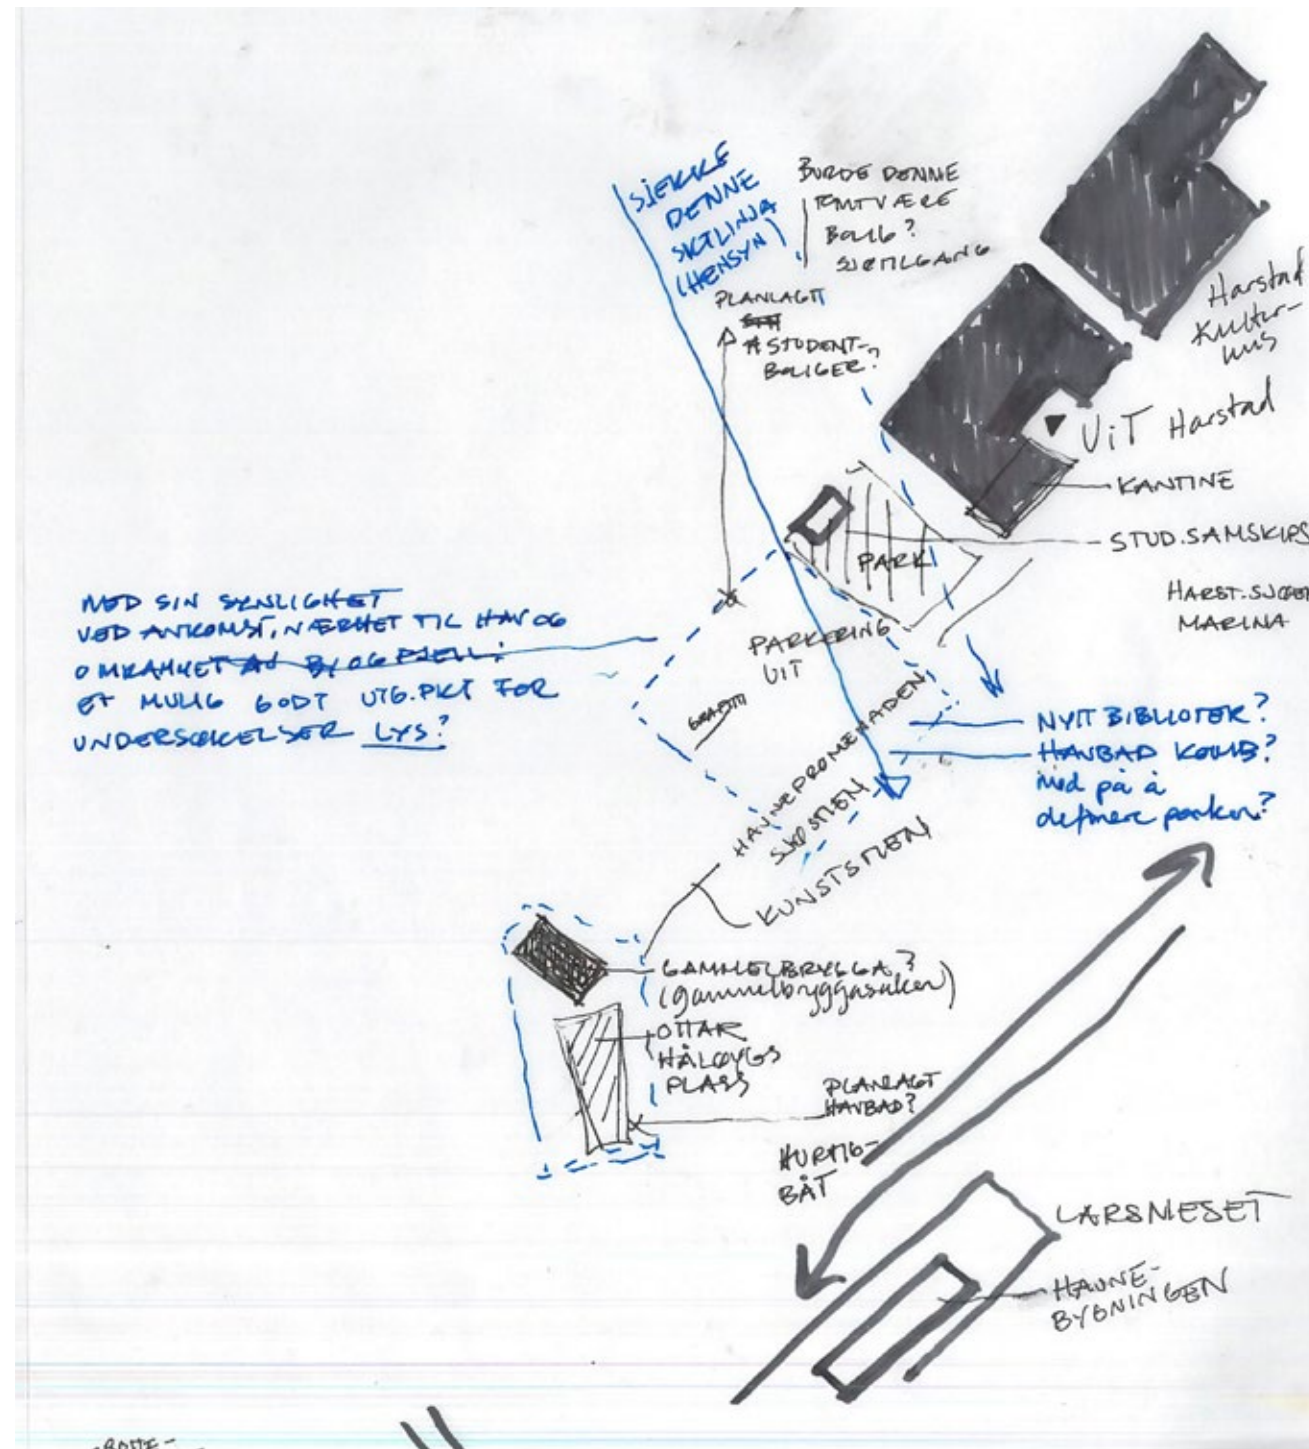 SJEKKE
DENNE
SIKTLINJA
(HENSYN)
BURDE DENNE
VÆRE
BOLIG?
SJØTILGANG
PLANLAGT
STUDENT-
BOLIGER?
Harstad
Kultur-
hus
UiT Harstad
KANTINE
STUD.SAMSKIPS
PARK
HARST.
MARINA
PARKERING
UIT
GRAFITTI
MED SIN SYNLIGHET
VED ANKOMST, NÆRHET TIL HAV OG
OMKRANSET AV BY OG FJELL:
ET MULIG GODT UTG.PKT FOR
UNDERSØKELSER LYS?
HAVNEPROMENADEN
SJØSTIEN
KUNSTSTIEN
NYTT BIBLIOTEK?
HAVBAD KOMB?
med på å
definere parken?
GAMMELBRYGGA?
(gammelbryggasaken)
OTTAR
HÅLØYGS
PLASS
PLANLAGT
HAVBAD?
HURTIG-
BÅT
LARSNESET
HAVNE-
BYGNINGEN